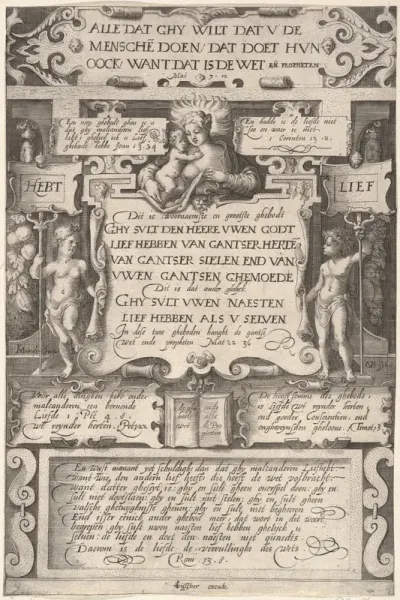 ALLE DAT GHY WILT DAT V DE
MENSCHĒ DOEN/ DAT DOET HUN
OOCK/ WANT DAT IS DE WET EŇ PROPHETEN
Mat 7. 12
Een niew ghebodt gheve ick u
dat ghy malcanderen lief
hebt
Joan 13.34
En hadde ic de liefde niet
soo en waer ic niet
1 Corinten 13. 2.
HEBT
LIEF
Dit is voornaemste en grootste ghebodt
GHY SVLT DEN HEERE VWEN GODT
LIEF HEBBEN VAN GANTSER HERTE
VAN GANTSER SIELEN END VAN
VWEN GANTSEN GHEMOEDE
Dit is dat ander ghebot
GHY SVLT VWEN NAESTEN
LIEF HEBBEN ALS V SELVEN
In dese twee gheboden hanght de gantse
wet ende propheten Mat 22 36
Voor alle dinghen hebt onder
malcanderen een bernende
Liefde 1 Pet 4. 8.
wt reynder herten
De hooft somme des ghebods
is liefde wt reynder herten
end goeder Conscientien, end
ongheveynsden gheloove. 1 Timot 1
En weest niemant yet schuldigh dan dat ghy malcanderen Liefhebt
want wie den andern lief heeft die heeft de wet volbracht:
want datter gheseyt is: ghy en sult gheen overspel doen: ghy en
sult niet dootslaen: ghy en sult niet stelen: ghy en sult gheen
valsche ghetuyghnisse gheven: ghy en sult niet begheren
End isser eenich ander ghebod meer, dat wort in dit woort
begrepen ghy sult uwen naesten lief hebben ghelijck u
selven: de liefde en doet den naesten niet quaedts
Daerom is de liefde de vervullinghe des Wets.
Rom 13. 8.
Visscher excude.